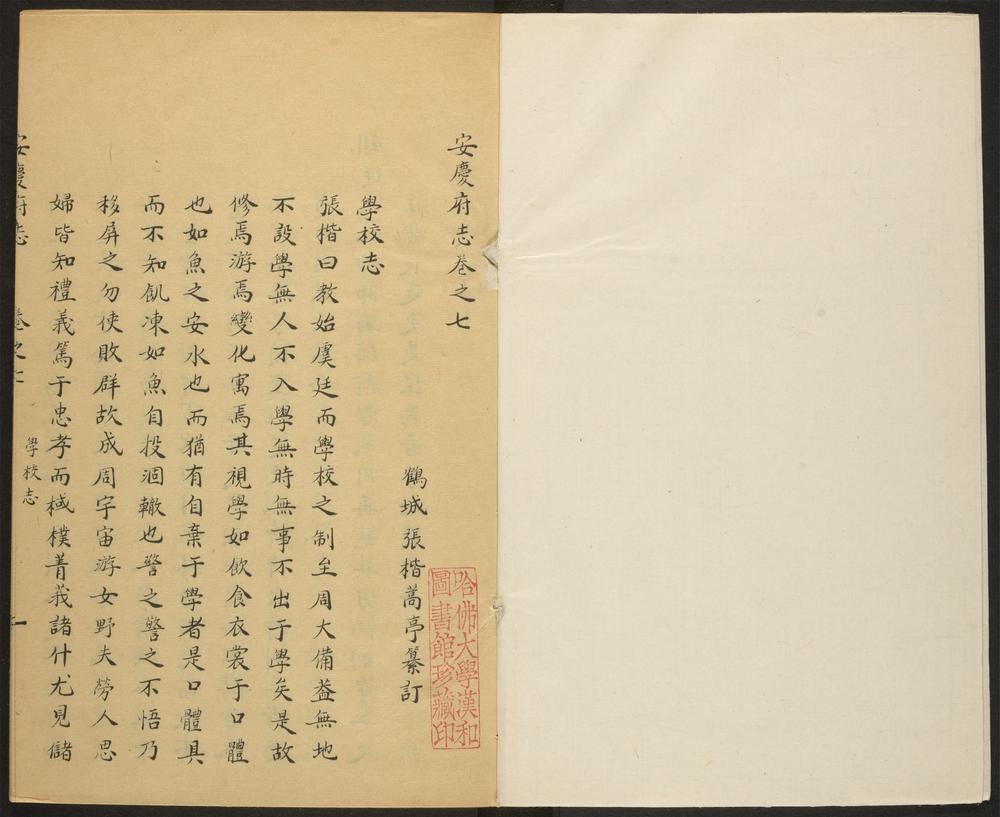 安慶府志卷之七
鶴城張楷蒿亭纂訂
哈佛大學漢和
圖書館珍藏印
學校志
張楷曰教始虞廷而學校之制至周大備葢無地
不設學無人不入學無時無事不出于學矣是故
修焉游焉變化寓焉其視學如飲食衣裳于口體
也如魚之安水也而猶有自棄于學者是口體具
而不知飢凍如魚自投涸轍也警之警之不悟乃
移屏之勿使敗群故成周宇宙游女野夫勞人思
婦皆知禮義篤于忠孝而棫樸菁莪諸什尤見儲
安慶府志 卷之七 學校志 一